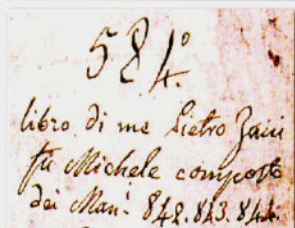 584.°
libro di me Pietro Zani
fu Michele composto
dei Man.i 842. 843. 844.